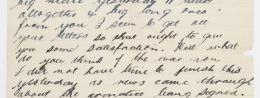 altogether & they long ones
from you I seem to get all
your letters so that ought to give
you some satisfaction. Well what
do you think of the war now
I did not have time to finish this
yesterday as news came through
about the armistice being signed.